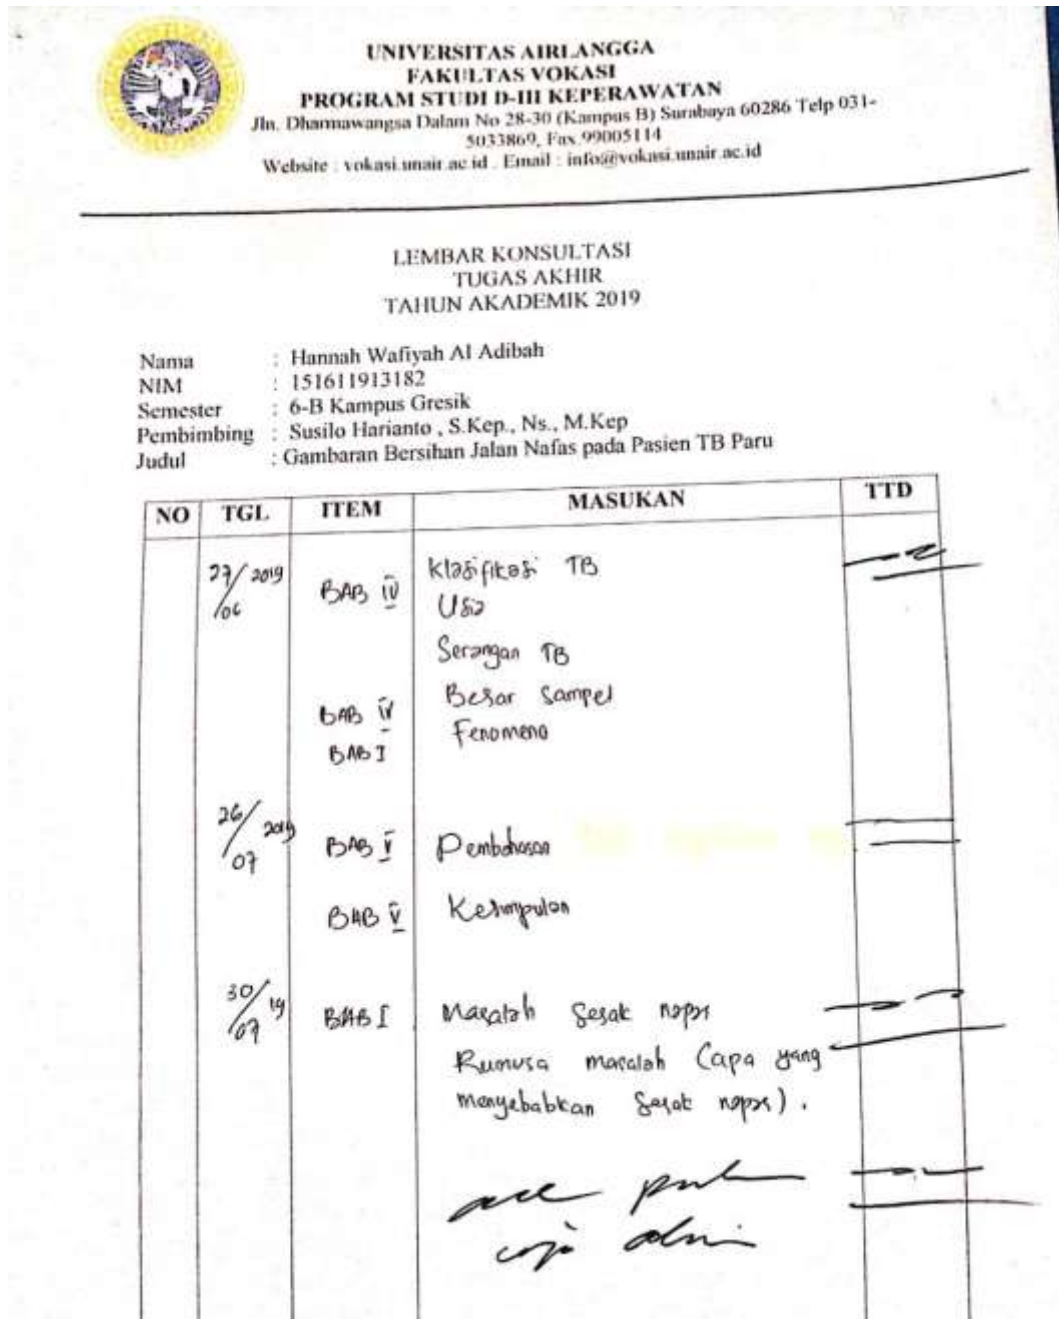 UNIVERSITAS AIRLANGGA
FAKULTAS VOKASI
PROGRAM STUDI D-III KEPERAWATAN
Jln. Dharmawangsa Dalam No 28-30 (Kampus B) Surabaya 60286 Telp 031-
5033869, Fax 99005114
Website : vokasi.unair.ac.id . Email : info@vokasi.unair.ac.id
LEMBAR KONSULTASI
TUGAS AKHIR
TAHUN AKADEMIK 2019
Nama : Hannah Wafiyah Al Adibah
NIM : 151611913182
Semester : 6-B Kampus Gresik
Pembimbing : Susilo Harianto , S.Kep., Ns., M.Kep
Judul : Gambaran Bersihan Jalan Nafas pada Pasien TB Paru
NO TGL ITEM MASUKAN TTD
27/06 2019 BAB IV Klasifikasi TB
Usia
Serangan TB
BAB IV Besar Sampel
BAB I Fenomena
26/07 2019 BAB V Pembahasan
BAB V Kesimpulan
30/07 19 BAB I Masalah Sesak napas
Rumusa masalah (apa yang
menyebabkan Sesak napas).
acc